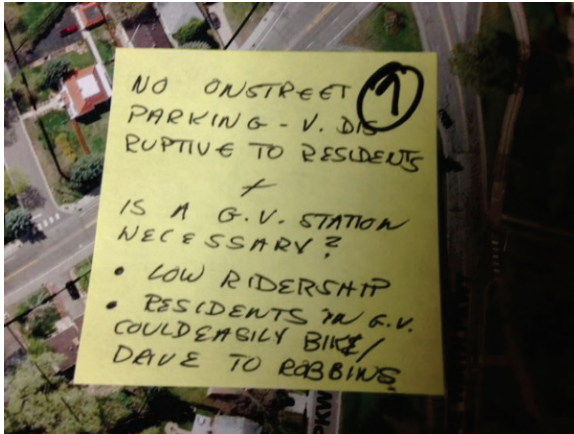 NO ONSTREET 1
PARKING - V. DIS
RUPTIVE TO RESIDENTS
+
IS A G.V. STATION
NECESSARY?
• LOW RIDERSHIP
• RESIDENTS IN G.V.
COULD EASILY BIKE/
DRIVE TO ROBBINS
PKW